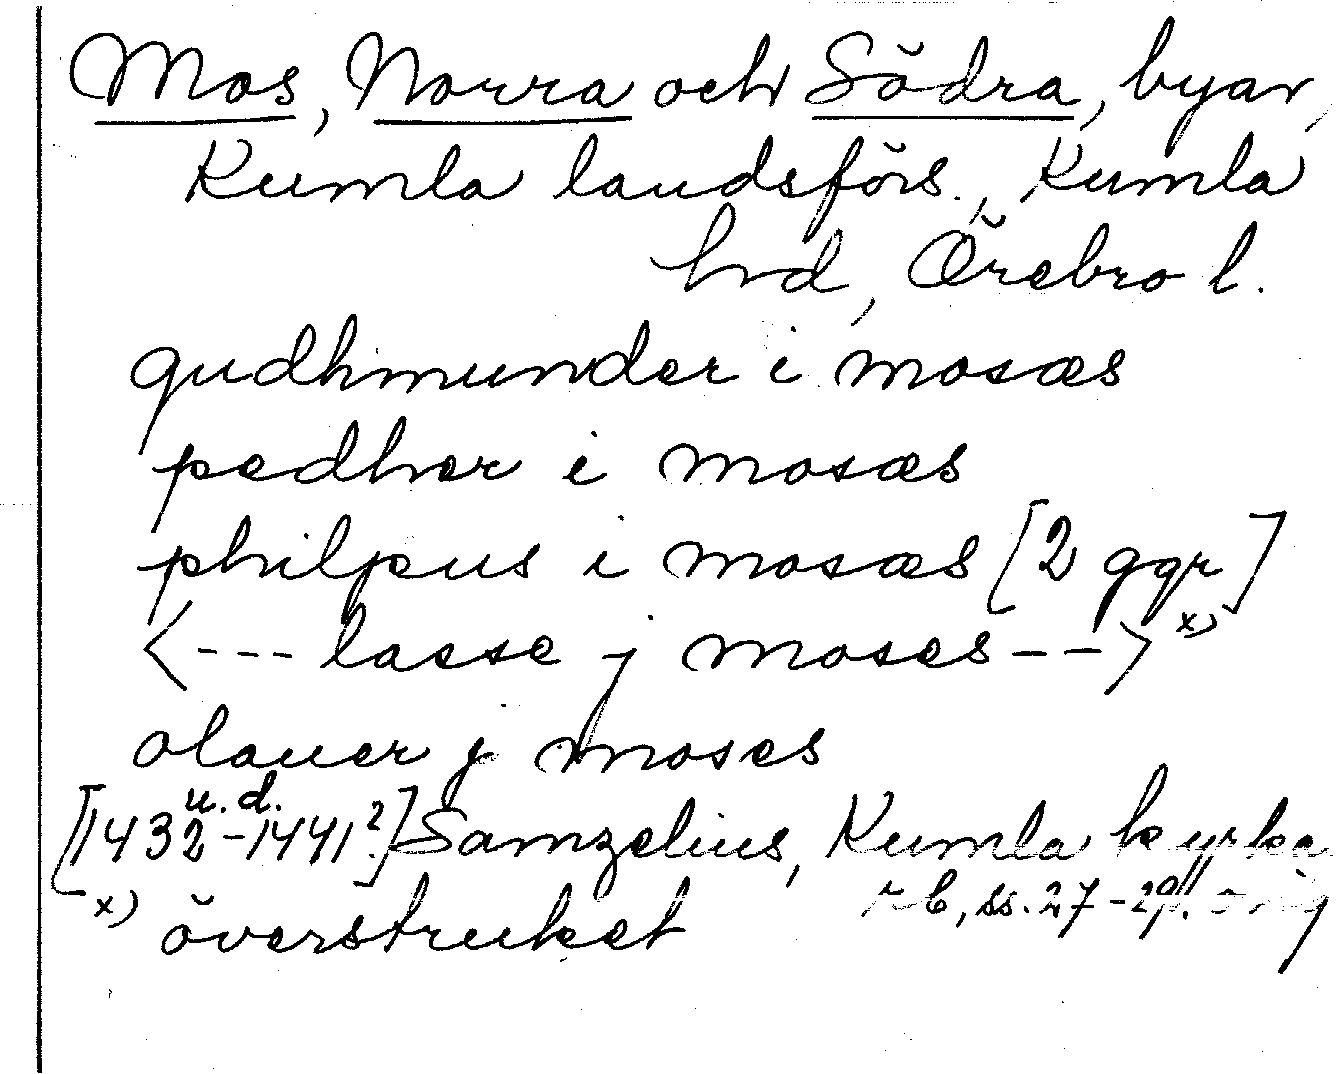 Mos, Norra och Södra, byar,
Kumla landsförs., Kumla
hrd, Örebro l.
gudhmunder i mosæs
pedher i mosæs
philpus i mosæs [2 ggr]
<---lasse j moses--> x)
olauer j moses
[u. d. 1432-1441?] Samzelius, Kumla kyrkas
rb, ss. 27-29.
x) överstruket